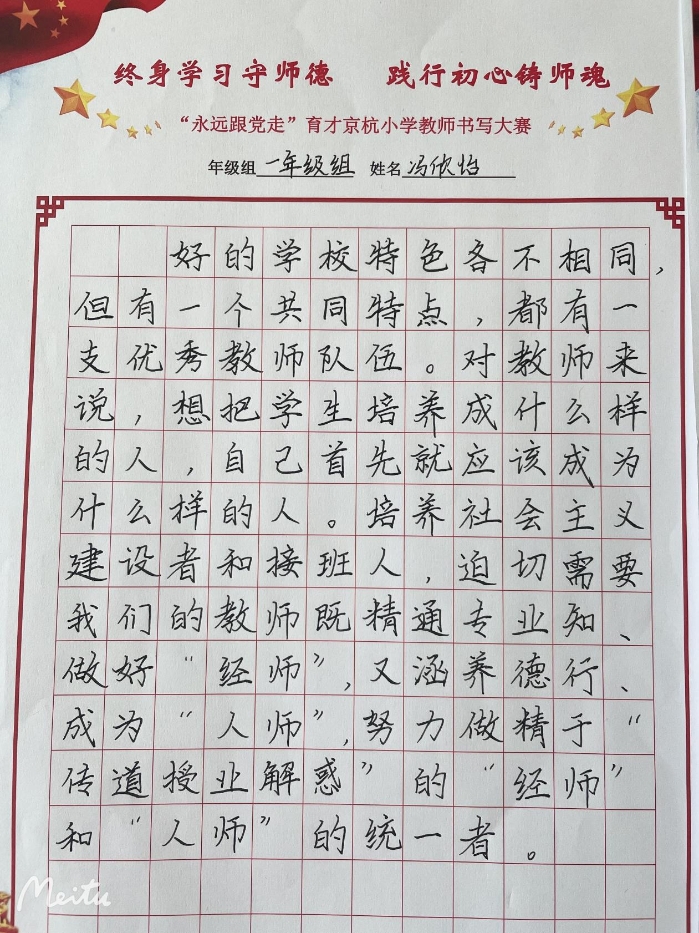 终身学习守师德 践行初心铸师魂
“永远跟党走”育才京杭小学教师书写大赛
年级组 一年级组 姓名 冯欣怡
好的学校特色各不相同，
但有一个共同特点，都有一
支优秀教师队伍。对教师来
说，想把学生培养成什么样
的人，自己首先就应该成为
什么样的人。培养社会主义
建设者和接班人，迫切需要
我们的教师既精通专业知、
做好“经师”，又涵养德行、
成为“人师”，努力做精于“
传道授业解惑”的“经师”
和“人师”的统一者。
Meitu